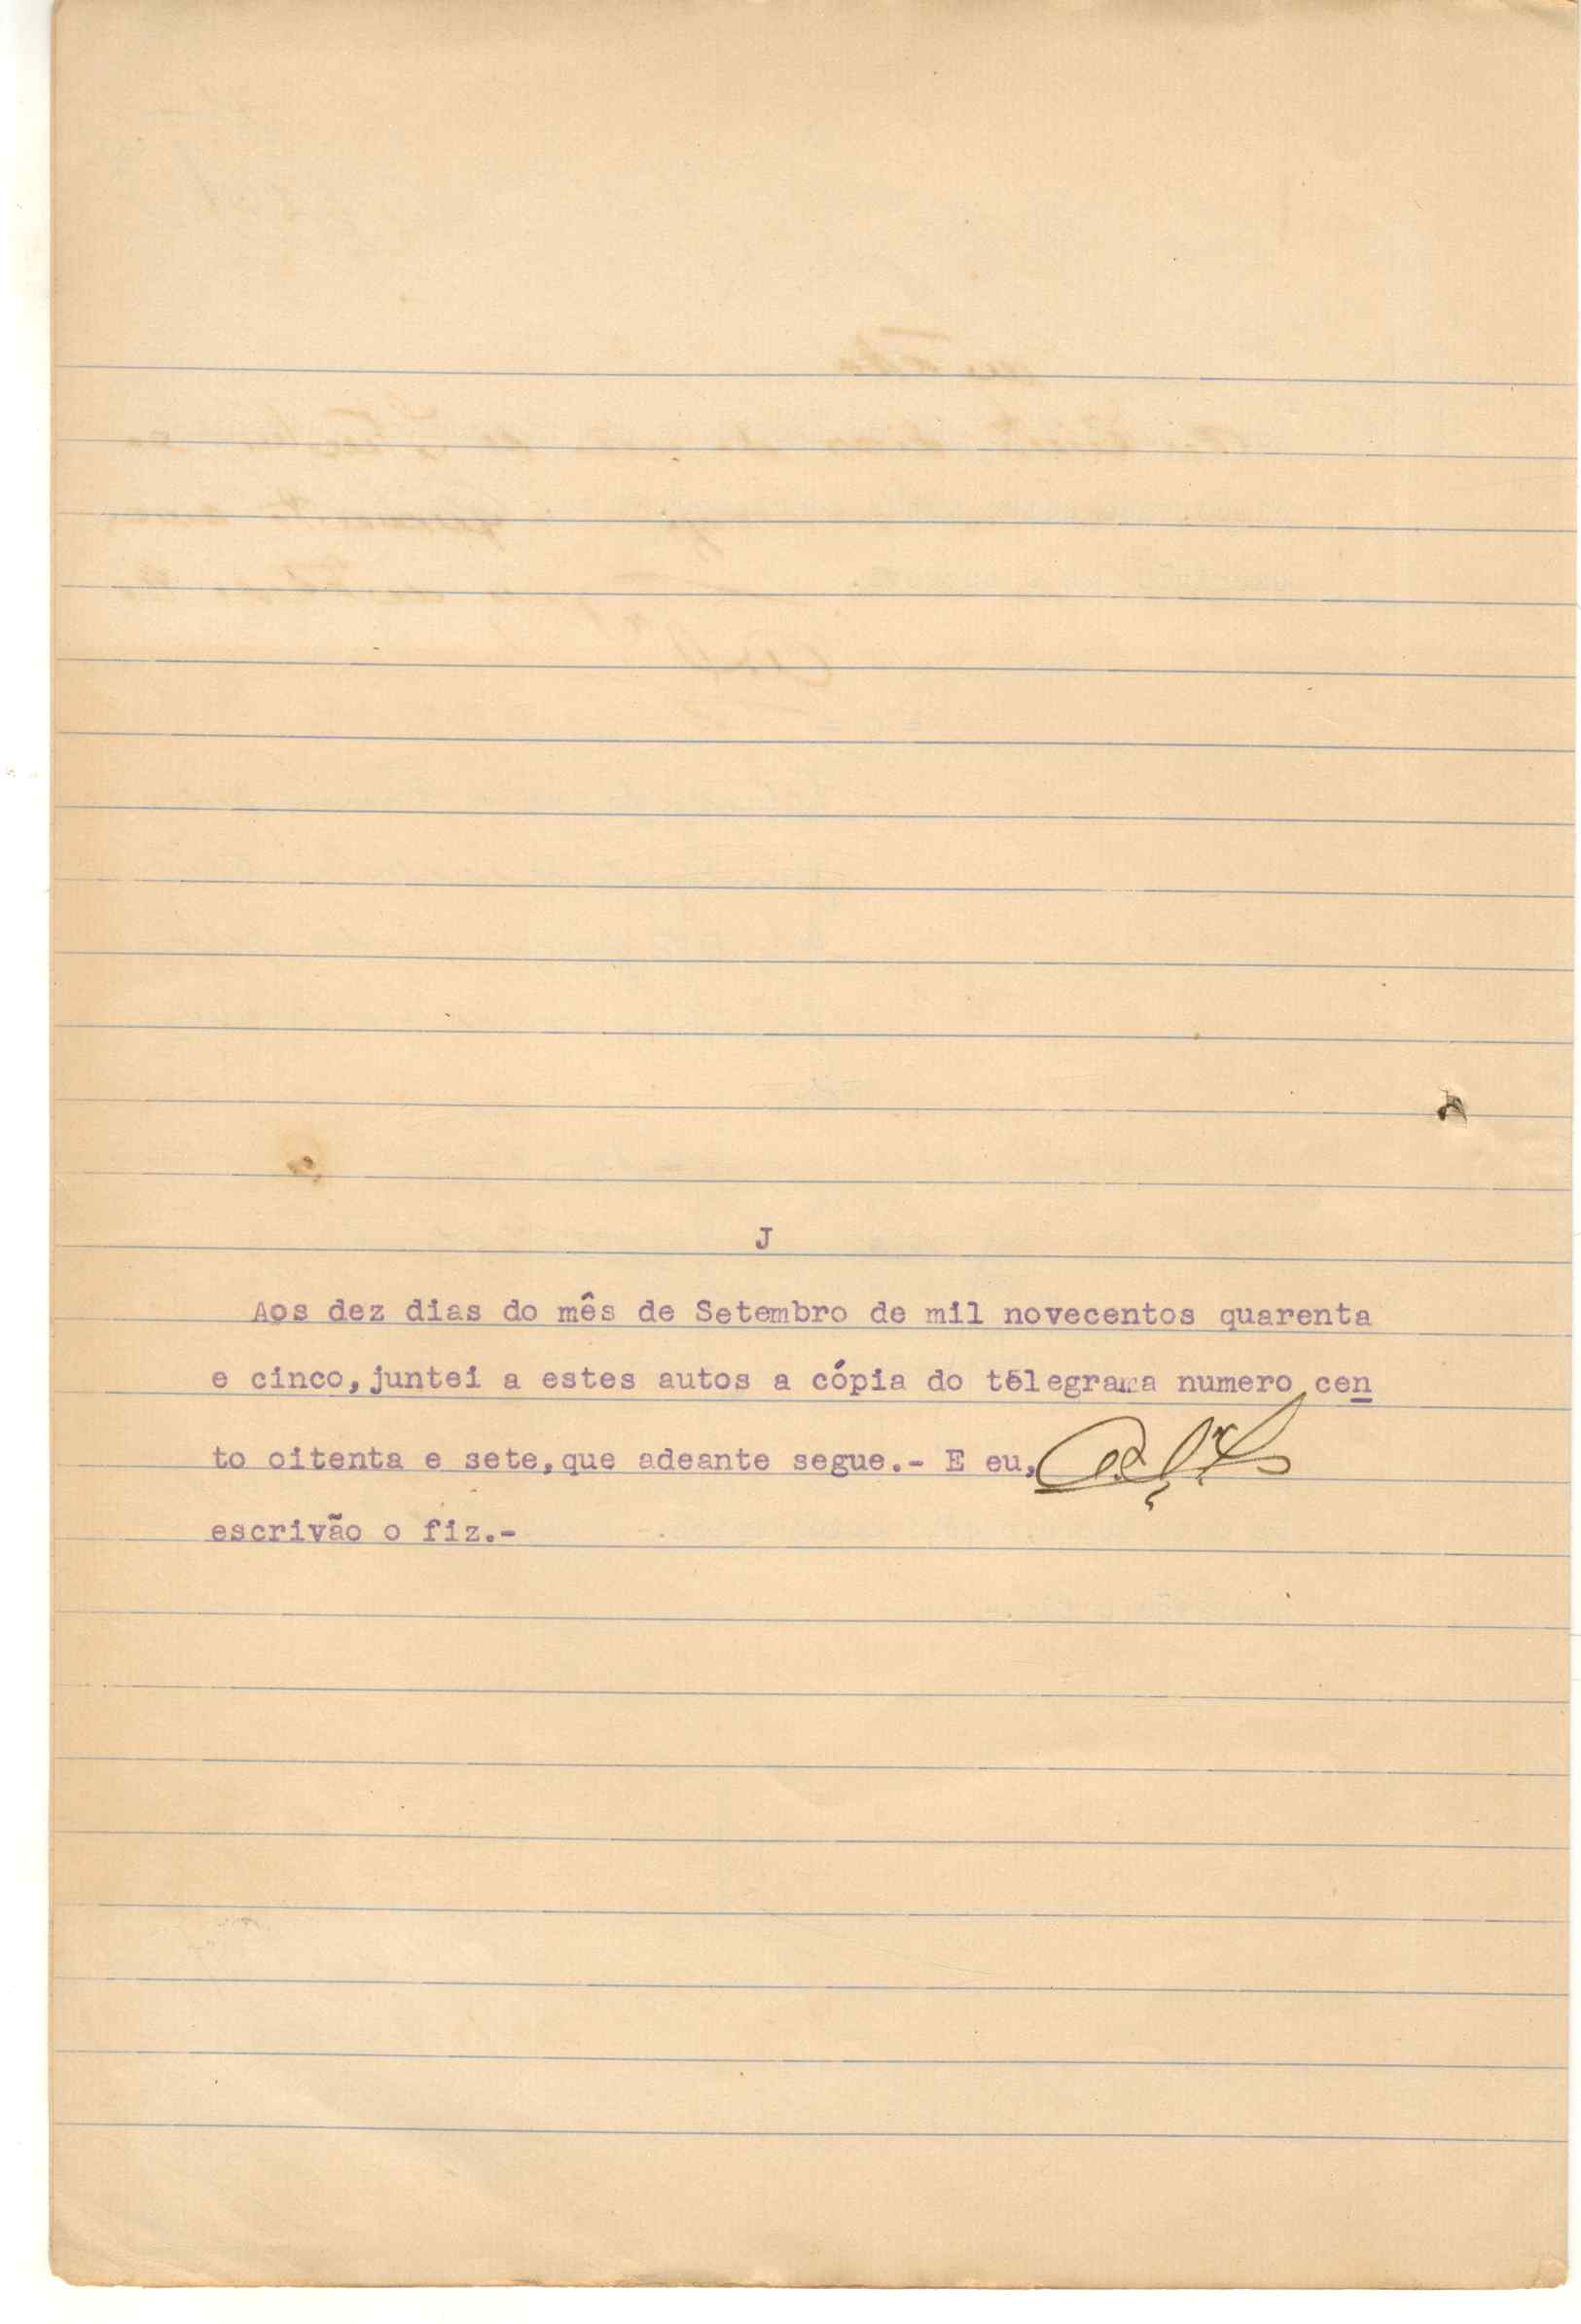 J
Aos dez dias do mês de Setembro de mil novecentos quarenta
e cinco, juntei a estes autos a cópia do télegrama numero cen
to oitenta e sete, que adeante segue.- E eu,
escrivão o fiz.-